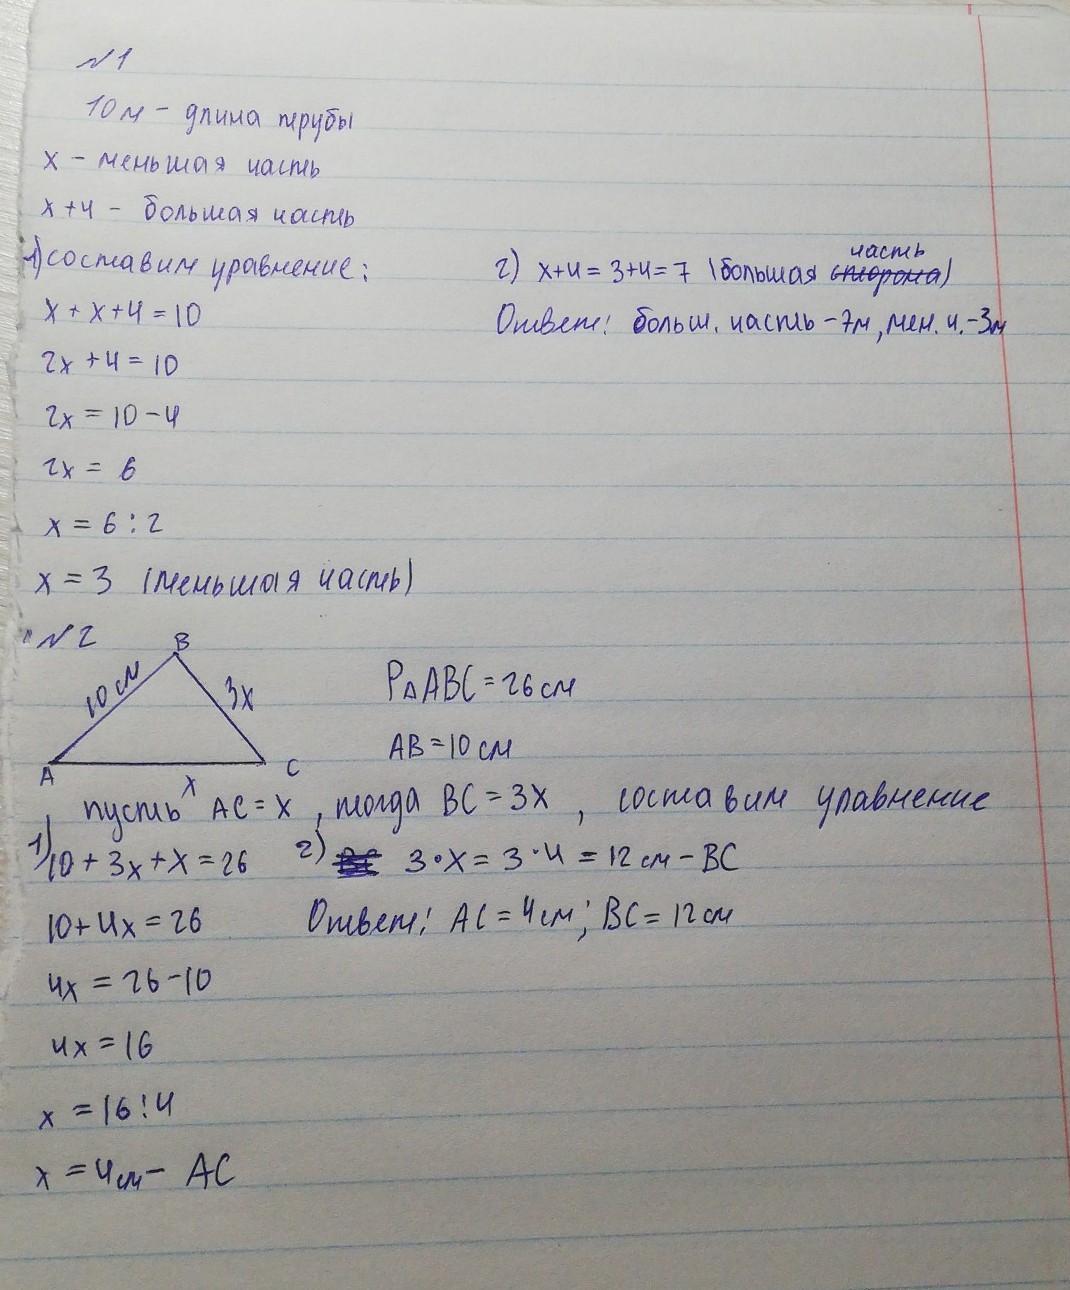 №1
10 м – длина трубы
x – меньшая часть
x+4 – большая часть
1) составим уравнение:
x + x+4 = 10
2x +4 = 10
2x = 10 – 4
2x = 6
x = 6 : 2
x = 3 (меньшая часть)
2) x+4 = 3+4 = 7 (большая сторона часть)
Ответ: больш. часть – 7м, мен. ч. – 3м
№2
B
10 см
3x
A
x
C
P△ABC = 26 см
AB = 10 см
пусть AC = x, тогда BC = 3x, составим уравнение
1) 10 + 3x + x = 26
10 + 4x = 26
4x = 26 – 10
4x = 16
x = 16 : 4
x = 4 см – AC
2) 3·x = 3·4 = 12 см – BC
Ответ: AC = 4 см; BC = 12 см